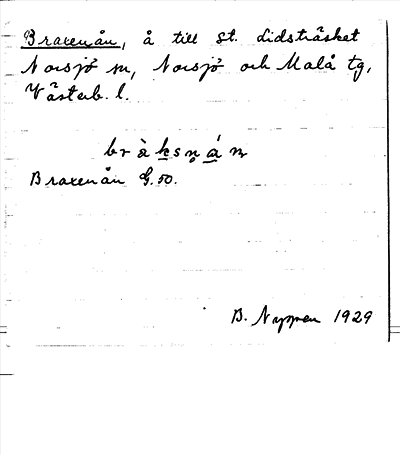 Braxenån, å till St. Lidsträsket
Norsjö sn, Norsjö och Malå tg,
Västerb. l.
bràksn̥ån
Braxenån G. 50.
B. 1929